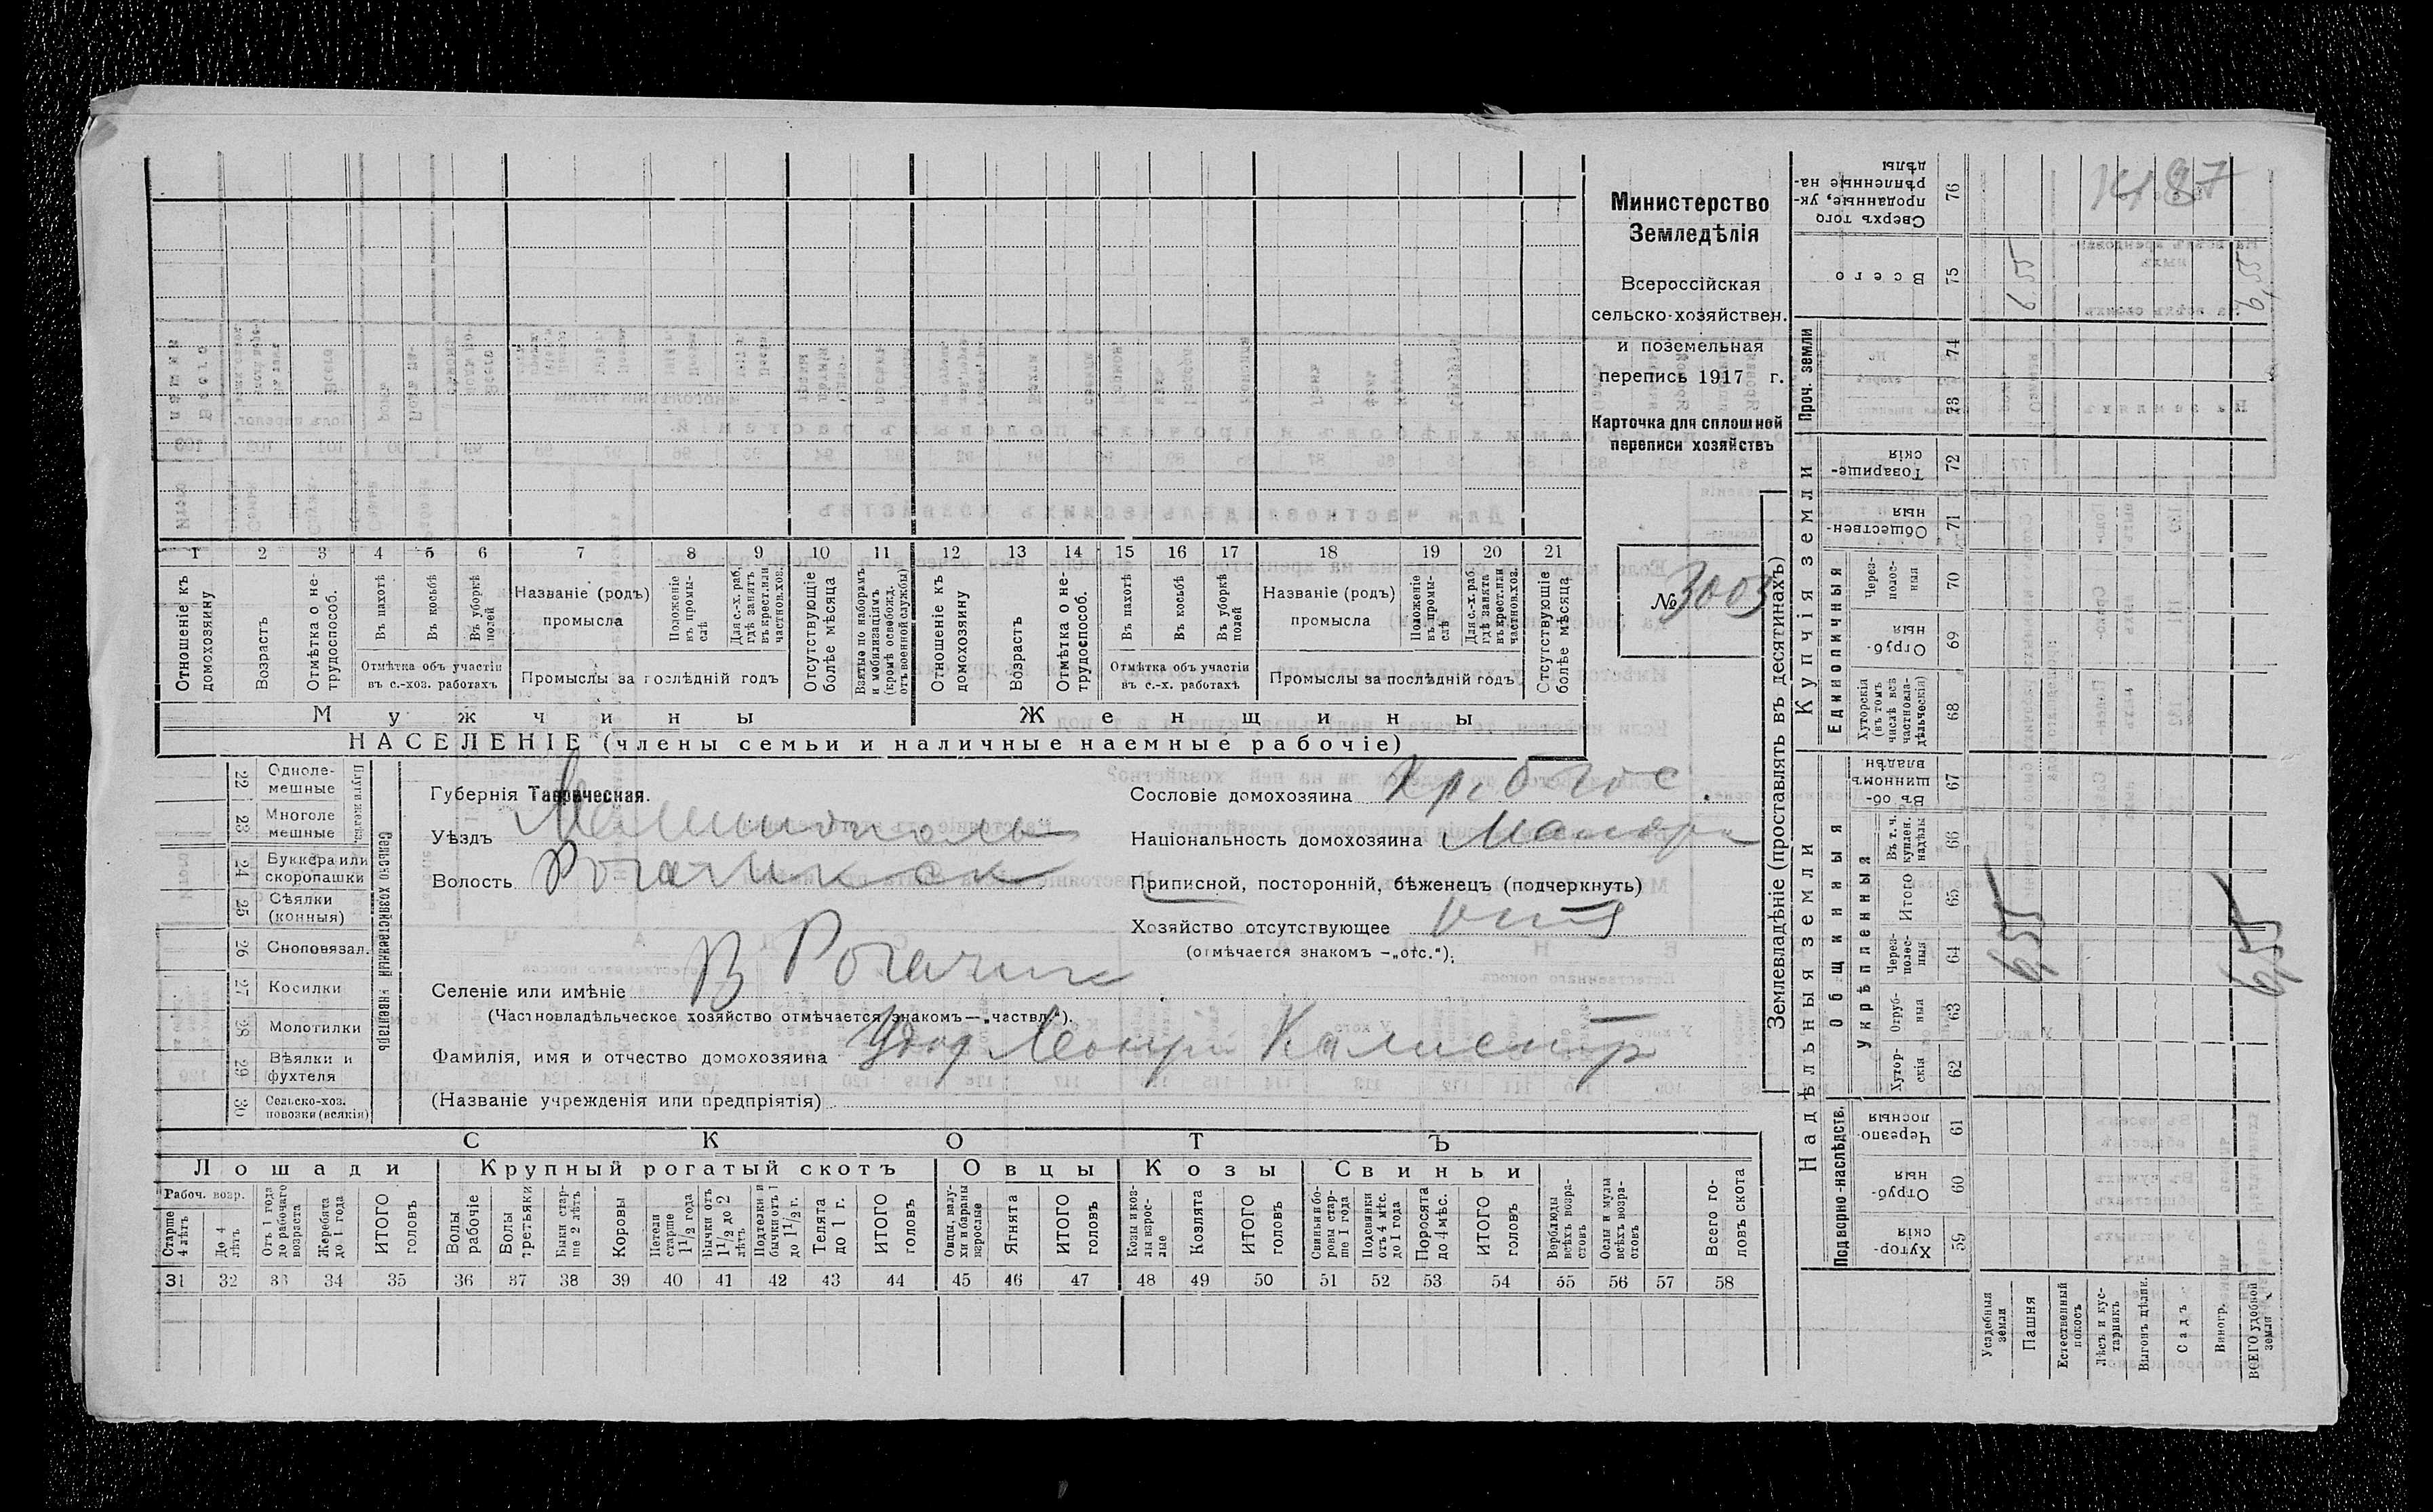 Министерство
Земледѣлія
Всероссійская
сельско-хозяйствен.
и поземельная
перепись 1917 г.
Карточка для сплошной
переписи хозяйствъ
№ 3003
1 2 3 4 5 6 7 8 9 10 11 12 13 14 15 16 17 18 19 20 21
Отношеніе къ домохозяину
Возрастъ
Отмѣтка о нетрудоспособ.
Въ пахотѣ
Въ косьбѣ
Въ уборкѣ полей
Отмѣтка объ участіи
въ с.-хоз. работахъ
Названіе (родъ)
промысла
Положеніе въ промыслѣ
Для с.-х. раб. гдѣ занятъ въ крест. или частнов. хоз.
Промыслы за послѣдній годъ
Отсутствующіе болѣе мѣсяца
Взятые по наборамъ и мобилизаціямъ (кромѣ освобожд. отъ военной службы)
Отношеніе къ домохозяину
Возрастъ
Отмѣтка о нетрудоспособ.
Въ пахотѣ
Въ косьбѣ
Въ уборкѣ полей
Отмѣтка объ участіи
въ с.-х. работахъ
Названіе (родъ)
промысла
Положеніе въ промыслѣ
Для с.-х. раб. гдѣ занята въ крест. или частнов. хоз.
Промыслы за послѣдній годъ
Отсутствующіе болѣе мѣсяца
Мужчины Женщины
НАСЕЛЕНІЕ (члены семьи и наличные наемные рабочіе)
Сельско хозяйственный инвентарь
22 Одноле-
мешные
23 Многоле
мешные
24 Буккера или
скоропашки
25 Сѣялки
(конныя)
26 Сноповязал.
27 Косилки
28 Молотилки
29 Вѣялки и
фухтеля
30 Сельско-хоз.
повозки (всякія)
Губернія Таврическая.
Уѣздъ Мелитополь
Волость Рогачикск
Селеніе или имѣніе В Рогачик
(Частновладѣльческое хозяйство отмѣчается знакомъ—„частвл.").
Фамилія, имя и отчество домохозяина Удод Калистр
(Названіе учрежденія или предпріятія)
Сословіе домохозяина
Національность домохозяина Малор
Приписной, посторонній, бѣженецъ (подчеркнуть)
Хозяйство отсутствующее
(отмѣчается знакомъ —„отс.").
СКОТЪ
Лошади Крупный рогатый скотъ Овцы Козы Свиньи
Рабоч. возр.
Старше 4 лѣтъ
До 4 лѣтъ
Отъ 1 года до рабочаго возраста
Жеребята до 1 года
ИТОГО головъ
Волы рабочіе
Волы третьяки
Быки старше 2 лѣтъ
Коровы
Нетели старше 1 1/2 года
Бычки отъ 1 1/2 до 2 лѣтъ
Подтелки и бычки отъ 1 до 1 1/2 г.
Телята до 1 г.
ИТОГО головъ
Овцы, валухи и бараны взрослые
Ягнята
ИТОГО головъ
Козы и козлы взрослые
Козлята
ИТОГО головъ
Свиньи и боровы старше 1 года
Подсвинки отъ 4 мѣс. до 1 года
Поросята до 4 мѣс.
ИТОГО головъ
Верблюды всѣхъ возрастовъ
Ослы и мулы всѣхъ возрастовъ
Всего головъ скота
31 32 33 34 35 36 37 38 39 40 41 42 43 44 45 46 47 48 49 50 51 52 53 54 55 56 57 58
Землевладѣніе (проставлять въ десятинахъ)
Надѣльныя земли Купчія земли Проч. земли
Подворно-наслѣдств.
Общинныя
Укрѣпленныя
Единоличныя
Хуторскія 59
Отрубныя 60
Черезполосныя 61
Хуторскія 62
Отрубныя 63
Черезполосныя 64
Итого 65
Въ т. ч. куплен. надѣлы 66
Въ общинномъ владѣн. 67
Хуторскія (въ томъ числѣ всѣ частновладѣльческія) 68
Отрубныя 69
Черезполосныя 70
Общественныя 71
Товарищескія 72
73
74
Всего 75
Сверхъ того проданные, укрѣпленные надѣлы 76
Усадебныя земли
Пашня
Естественный покосъ
Лѣсъ и кустарникъ
Выгонъ цѣлин.
Садъ
Виногр.
ВСЕГО удобной земли